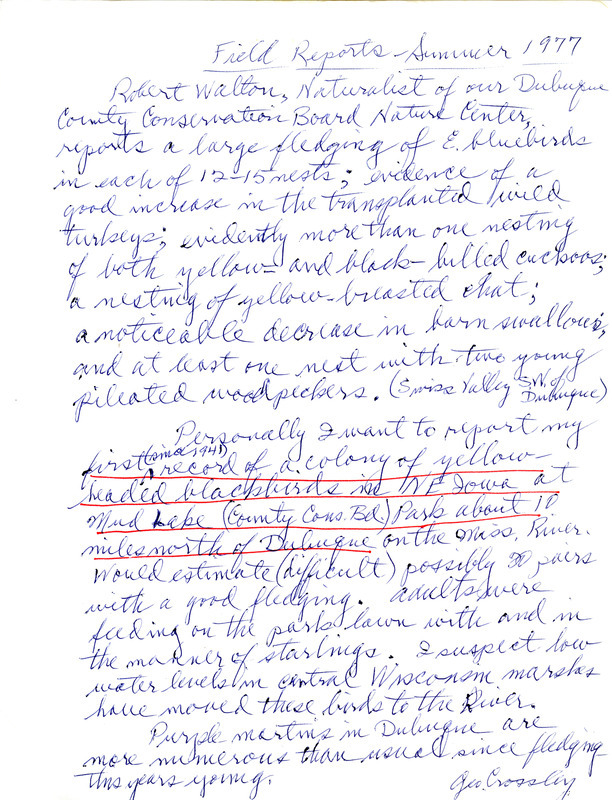 Field Reports - Summer 1977
Robert Walton, Naturalist of our Dubuque
County Conservation Board Nature Center,
reports a large fledging of E. bluebirds
in each of 12-15 nests; evidence of a
good increase in the transplanted wild
turkeys; evidently more than one nesting
of both yellow- and black-billed cuckoos;
a nesting of yellow-breasted chat;
a noticeable decrease in barn swallows;
and at least one nest with two young
pileated woodpeckers. (Swiss Valley S.W. of
Dubuque)
Personally I want to report my
first (since 1941) record of a colony of yellow-
headed blackbirds in NE Iowa at
Mud Lake (County Cons. Bd.) Park about 10
miles north of Dubuque on the Miss. River.
Would estimate (difficult) possibly 30 pairs
with a good fledging. Adults were
feeding on the park lawn with and in
the manner of starlings. I suspect low
water levels in central Wisconsin marshes
have moved these birds to the River.
Purple martins in Dubuque are
more numerous than usual since fledging
this years young.
Geo. Crossley